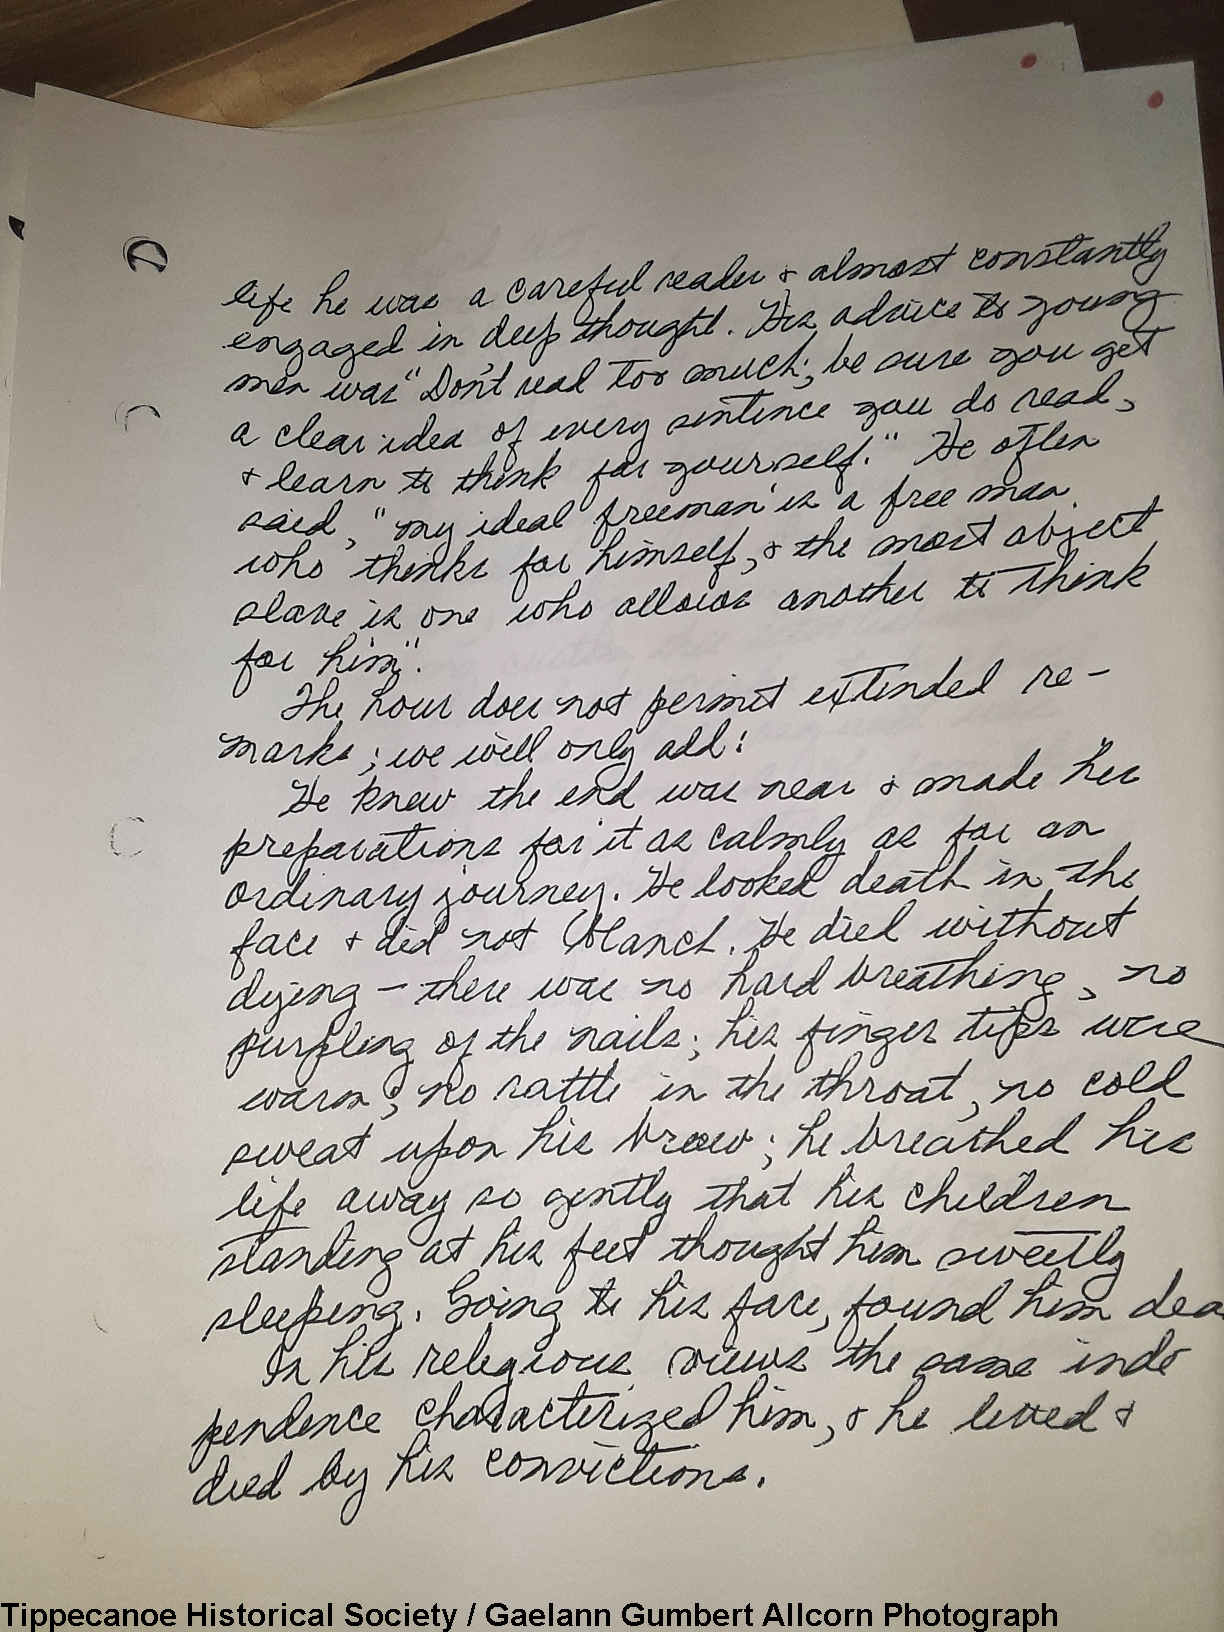 life he was a careful reader & almost constantly
engaged in deep thought. His advice to young
men was "Don't read too much; be sure you get
a clear idea of every sentence you do read,
& learn to think for yourself." He often
said, "my ideal freeman is a free man
who thinks for himself, & the most abject
slave is one who allows another to think
for him".
The hour does not permit extended re-
marks; we will only add:
He knew the end was near & made his
preparations for it as calmly as for an
ordinary journey. He looked death in the
face & did not blanch. He died without
dying - there was no hard breathing, no
purpling of the nails; his finger tips were
warm; no rattle in the throat, no cold
sweat upon his brow; he breathed his
life away so gently that his children
standing at his feet thought him sweetly
sleeping. Going to his face, found him dea
In his religious views the same inde
pendence characterized him, & he lived &
died by his convictions.
Tippecanoe Historical Society / Gaelann Gumbert Allcorn Photograph